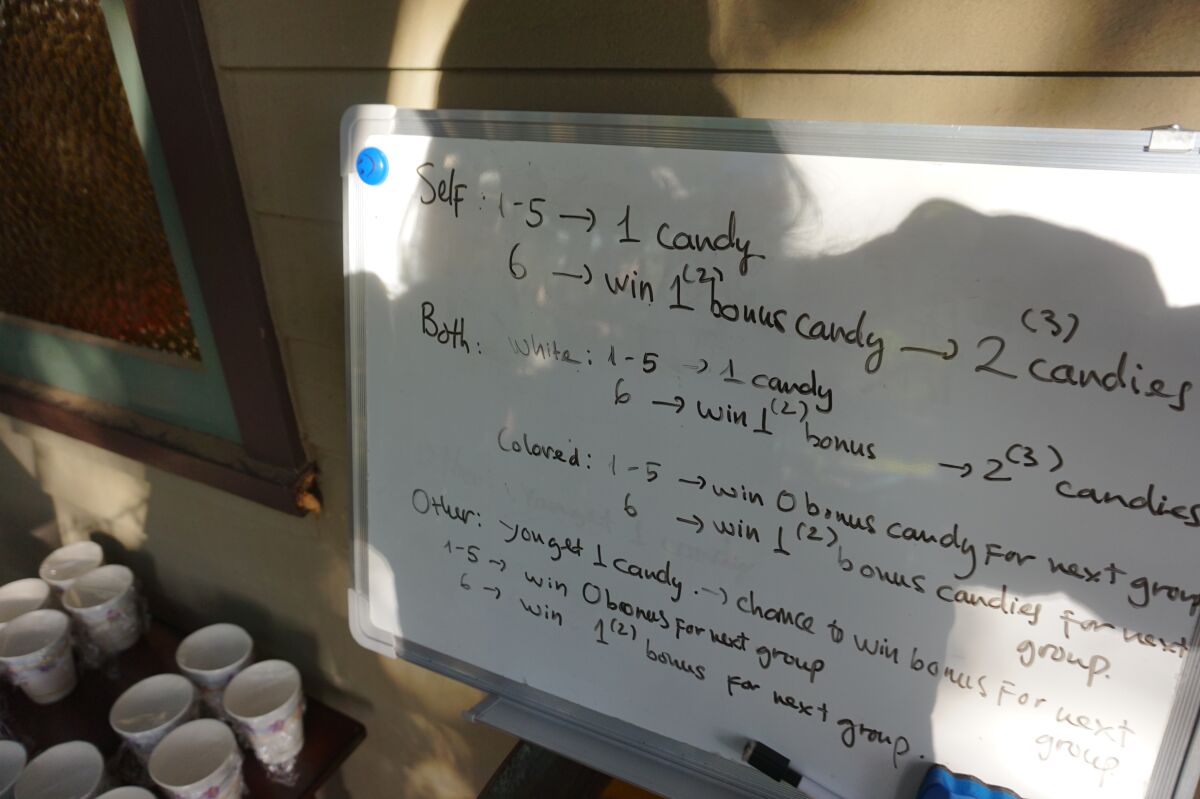 Self: 1-5 → 1 candy
6 → win 1(2) bonus candy → 2(3) candies
Both: white: 1-5 → 1 candy
6 → win 1(2) bonus → 2(3) candies
Colored: 1-5 → win 0 bonus candy for next group
6 → win 1(2) bonus candies for next group.
Other: you get 1 candy. → chance to win bonus for next group
1-5 → win 0 bonus for next group
6 → win 1(2) bonus for next group.